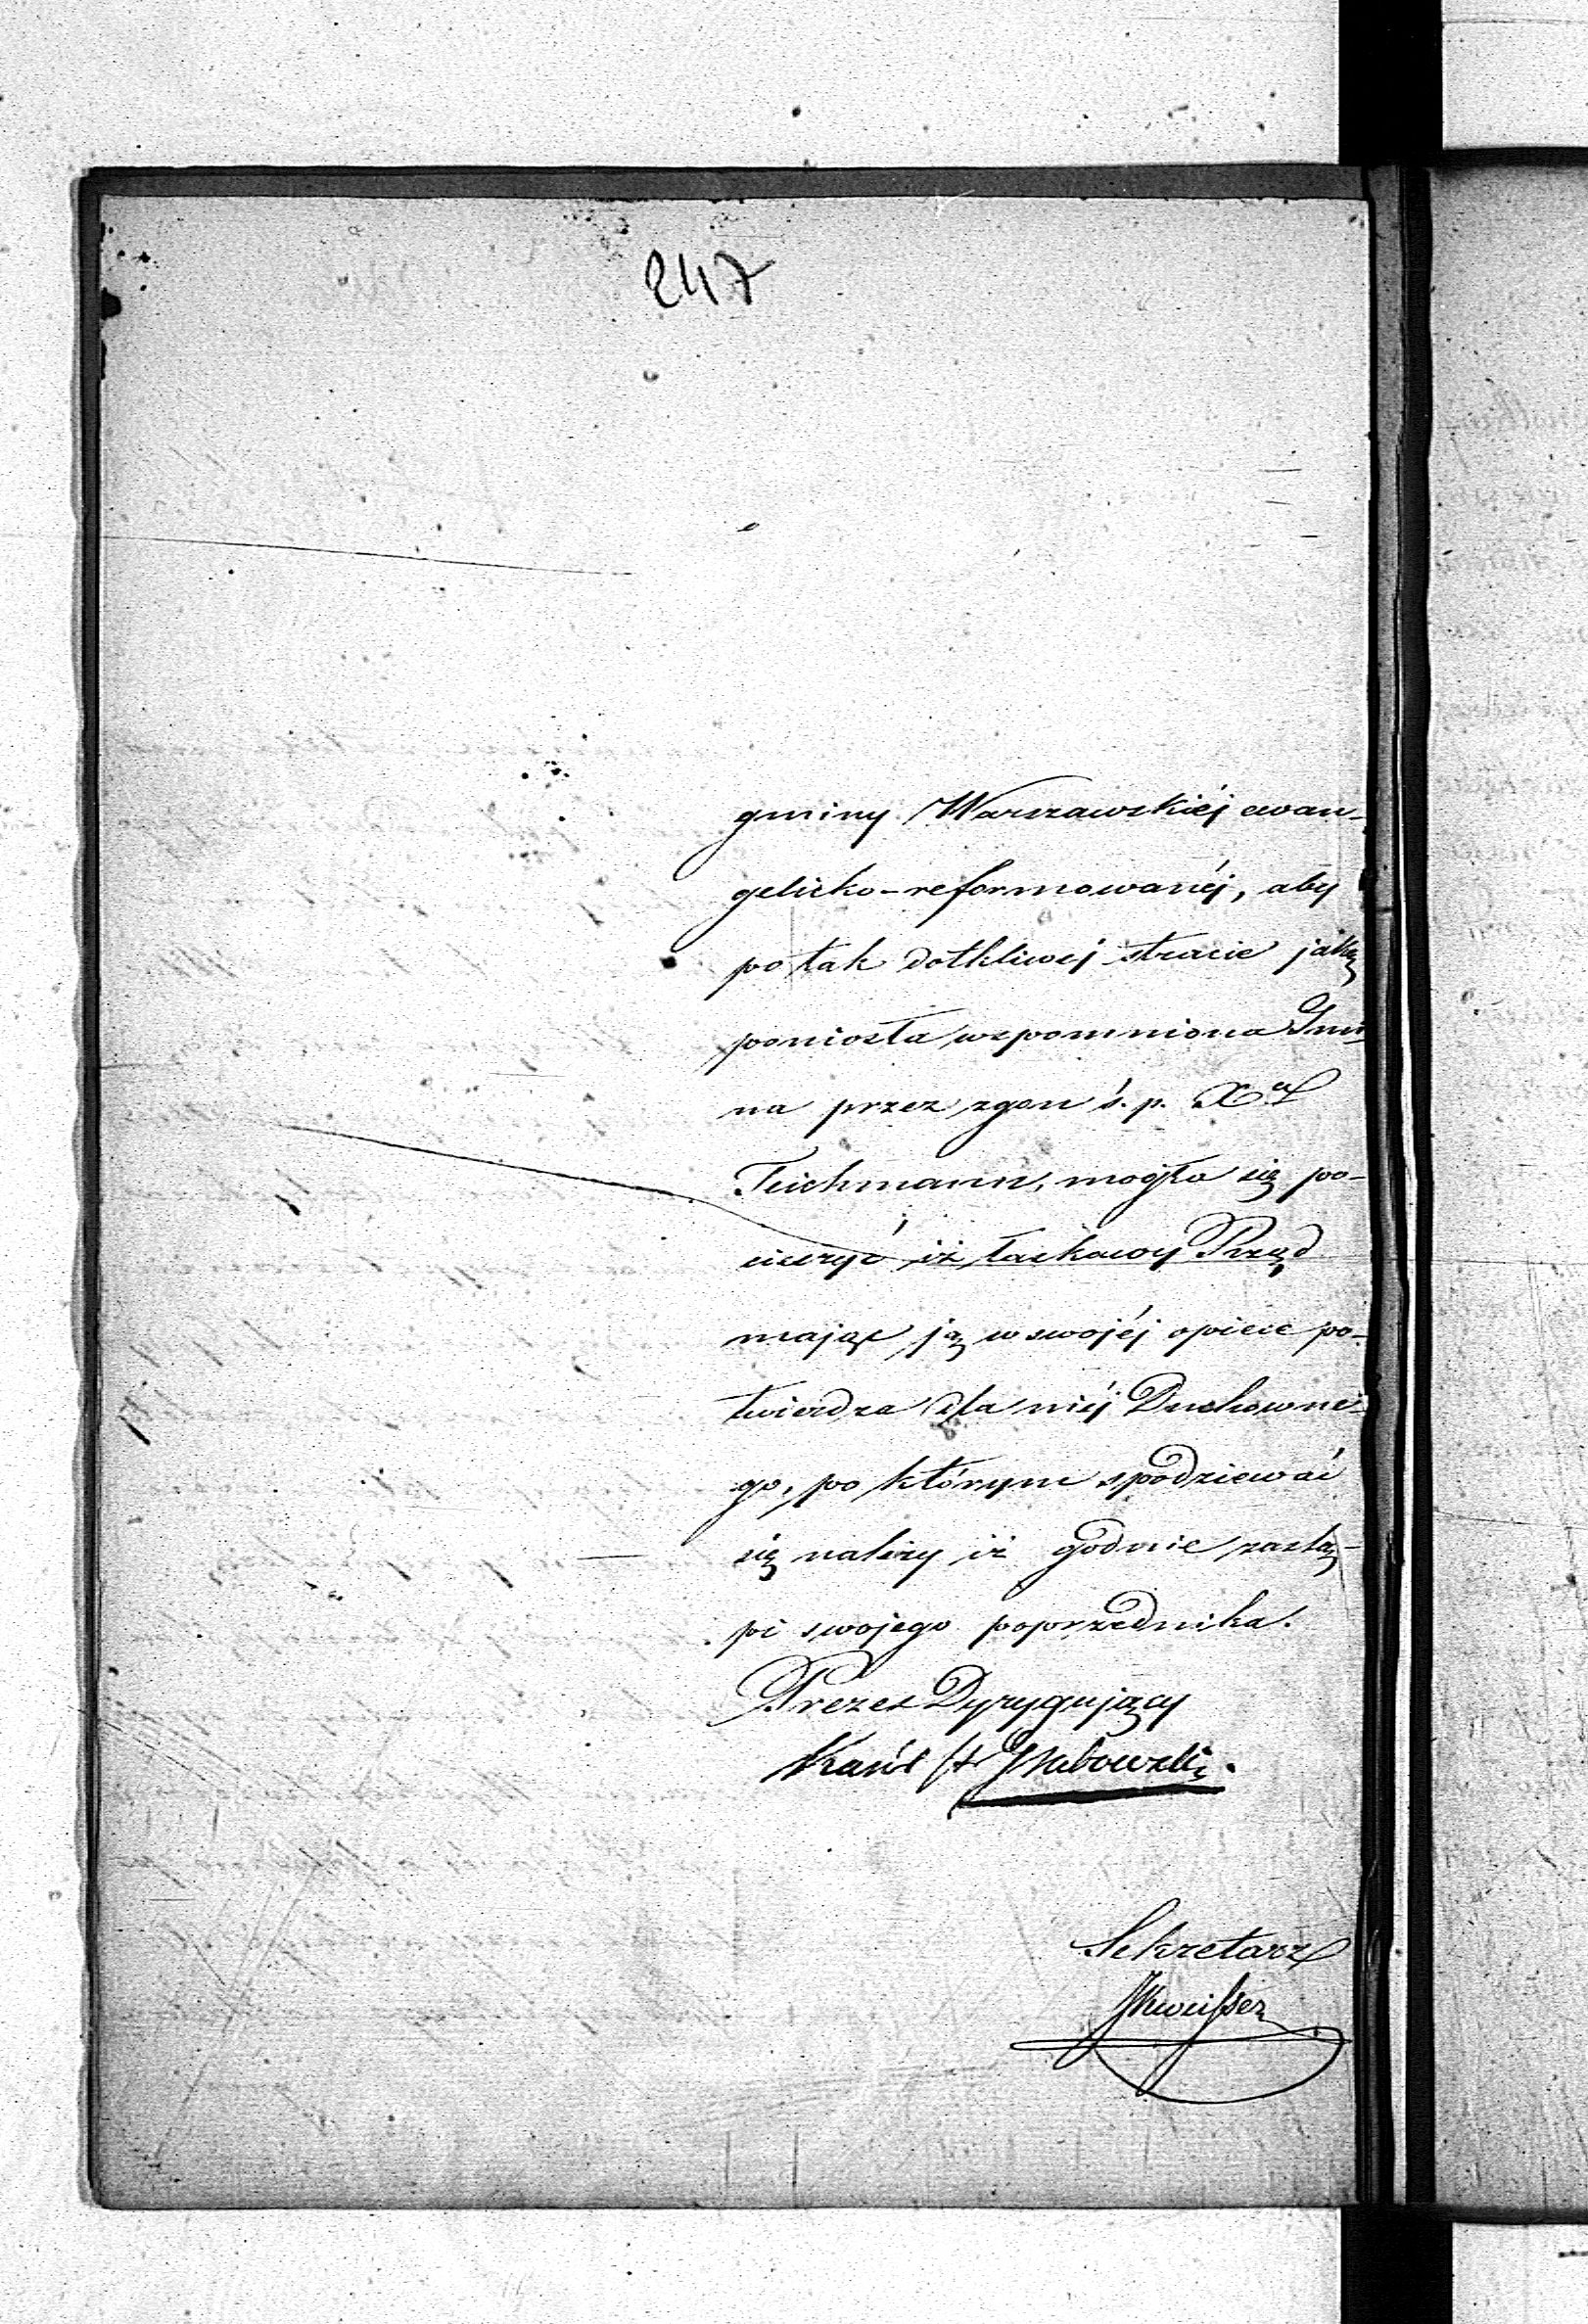 247
gminy Warszawskiéj ewan-
gelicko-reformowanéj, aby
po tak dotkliwej stracie jaką
poniosła wspomniona Gmi
na przez zgon ś. p. Xa
Teichmann, mogła się po-
cieszyć iż łaskawy Rząd
mając ją w swojéj opiece po-
twierdza dla niéj Duchowne-
go, po którym spodziewać
się należy iż godnie zastą-
pi swojego poprzednika.
Prezes Dyrygujący
Sekretarz